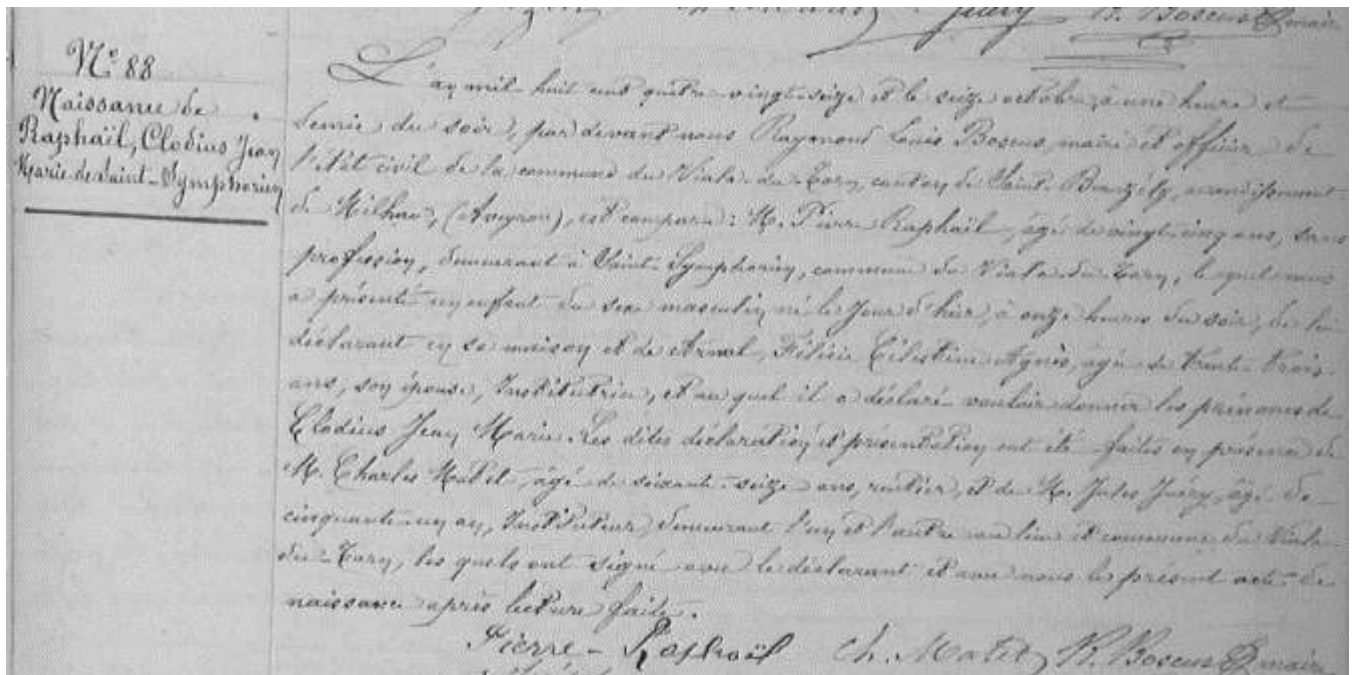 Juéry R. Boscus maire
N° 88
Naissance de
Raphaël, Clodius Jean
Marie de Saint-Symphorien
L'an mil huit cent quatre-vingt-seize et le seize octobre, à une heure et
demie du soir, par devant nous Raymond Louis Boscus, maire et officier de
l'état civil de la commune du Viala-du-Tarn, canton de Saint-Beauzély, arrondissement
de Milhau, (Aveyron), est comparu : M. Pierre Raphaël, âgé de vingt-cinq ans, sans
profession, demeurant à Saint-Symphorien, commune du Viala-du-Tarn, le quel nous
a présenté un enfant du sexe masculin né le jour d'hier, à onze heures du soir, de lui
déclarant en sa maison et de Arnal, Félicie Célestine Agnès, âgée de trente-trois
ans, son épouse, Institutrice, et au quel il a déclaré vouloir donner les prénoms de
Clodius Jean Marie. Les dites déclaration et présentation ont été faites en présence de
M. Charles Matet, âgé de soixante-seize ans, rentier, et de M. Jules Juéry, âgé de
cinquante-un an, Instituteur, demeurant l'un et l'autre au lieu et commune du Viala-
du-Tarn, les quels ont signé avec le déclarant et avec nous le présent acte de
naissance après lecture faite.
Pierre-Raphaël Ch. Matet R. Boscus maire